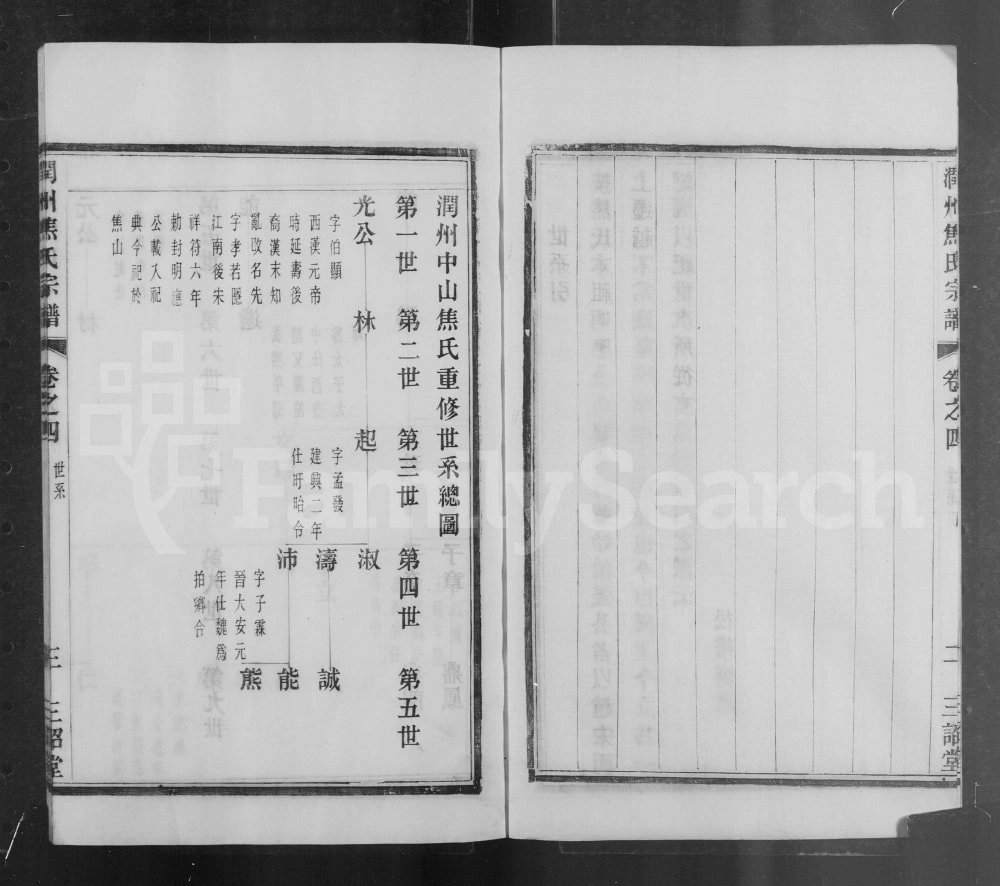 潤州焦氏宗譜
卷之四
二
三詔堂
潤州中山焦氏重修世系總圖
第一世
第二世
第三世
第四世
第五世
光公
林
起
淑
字伯顯
西漢元帝
時延壽後
裔漢末知
亂改名先
字孝若匿
江南後宋
祥符六年
勅封明應
公載入祀
典今祀於
焦山
字孟發
建興二年
仕盱眙令
濤
誠
沛
能
熊
字子霖
晉大安元
年仕魏為
拍鄉合
潤州焦氏宗譜
卷之四
世系
三
三詔堂
FamilySearch